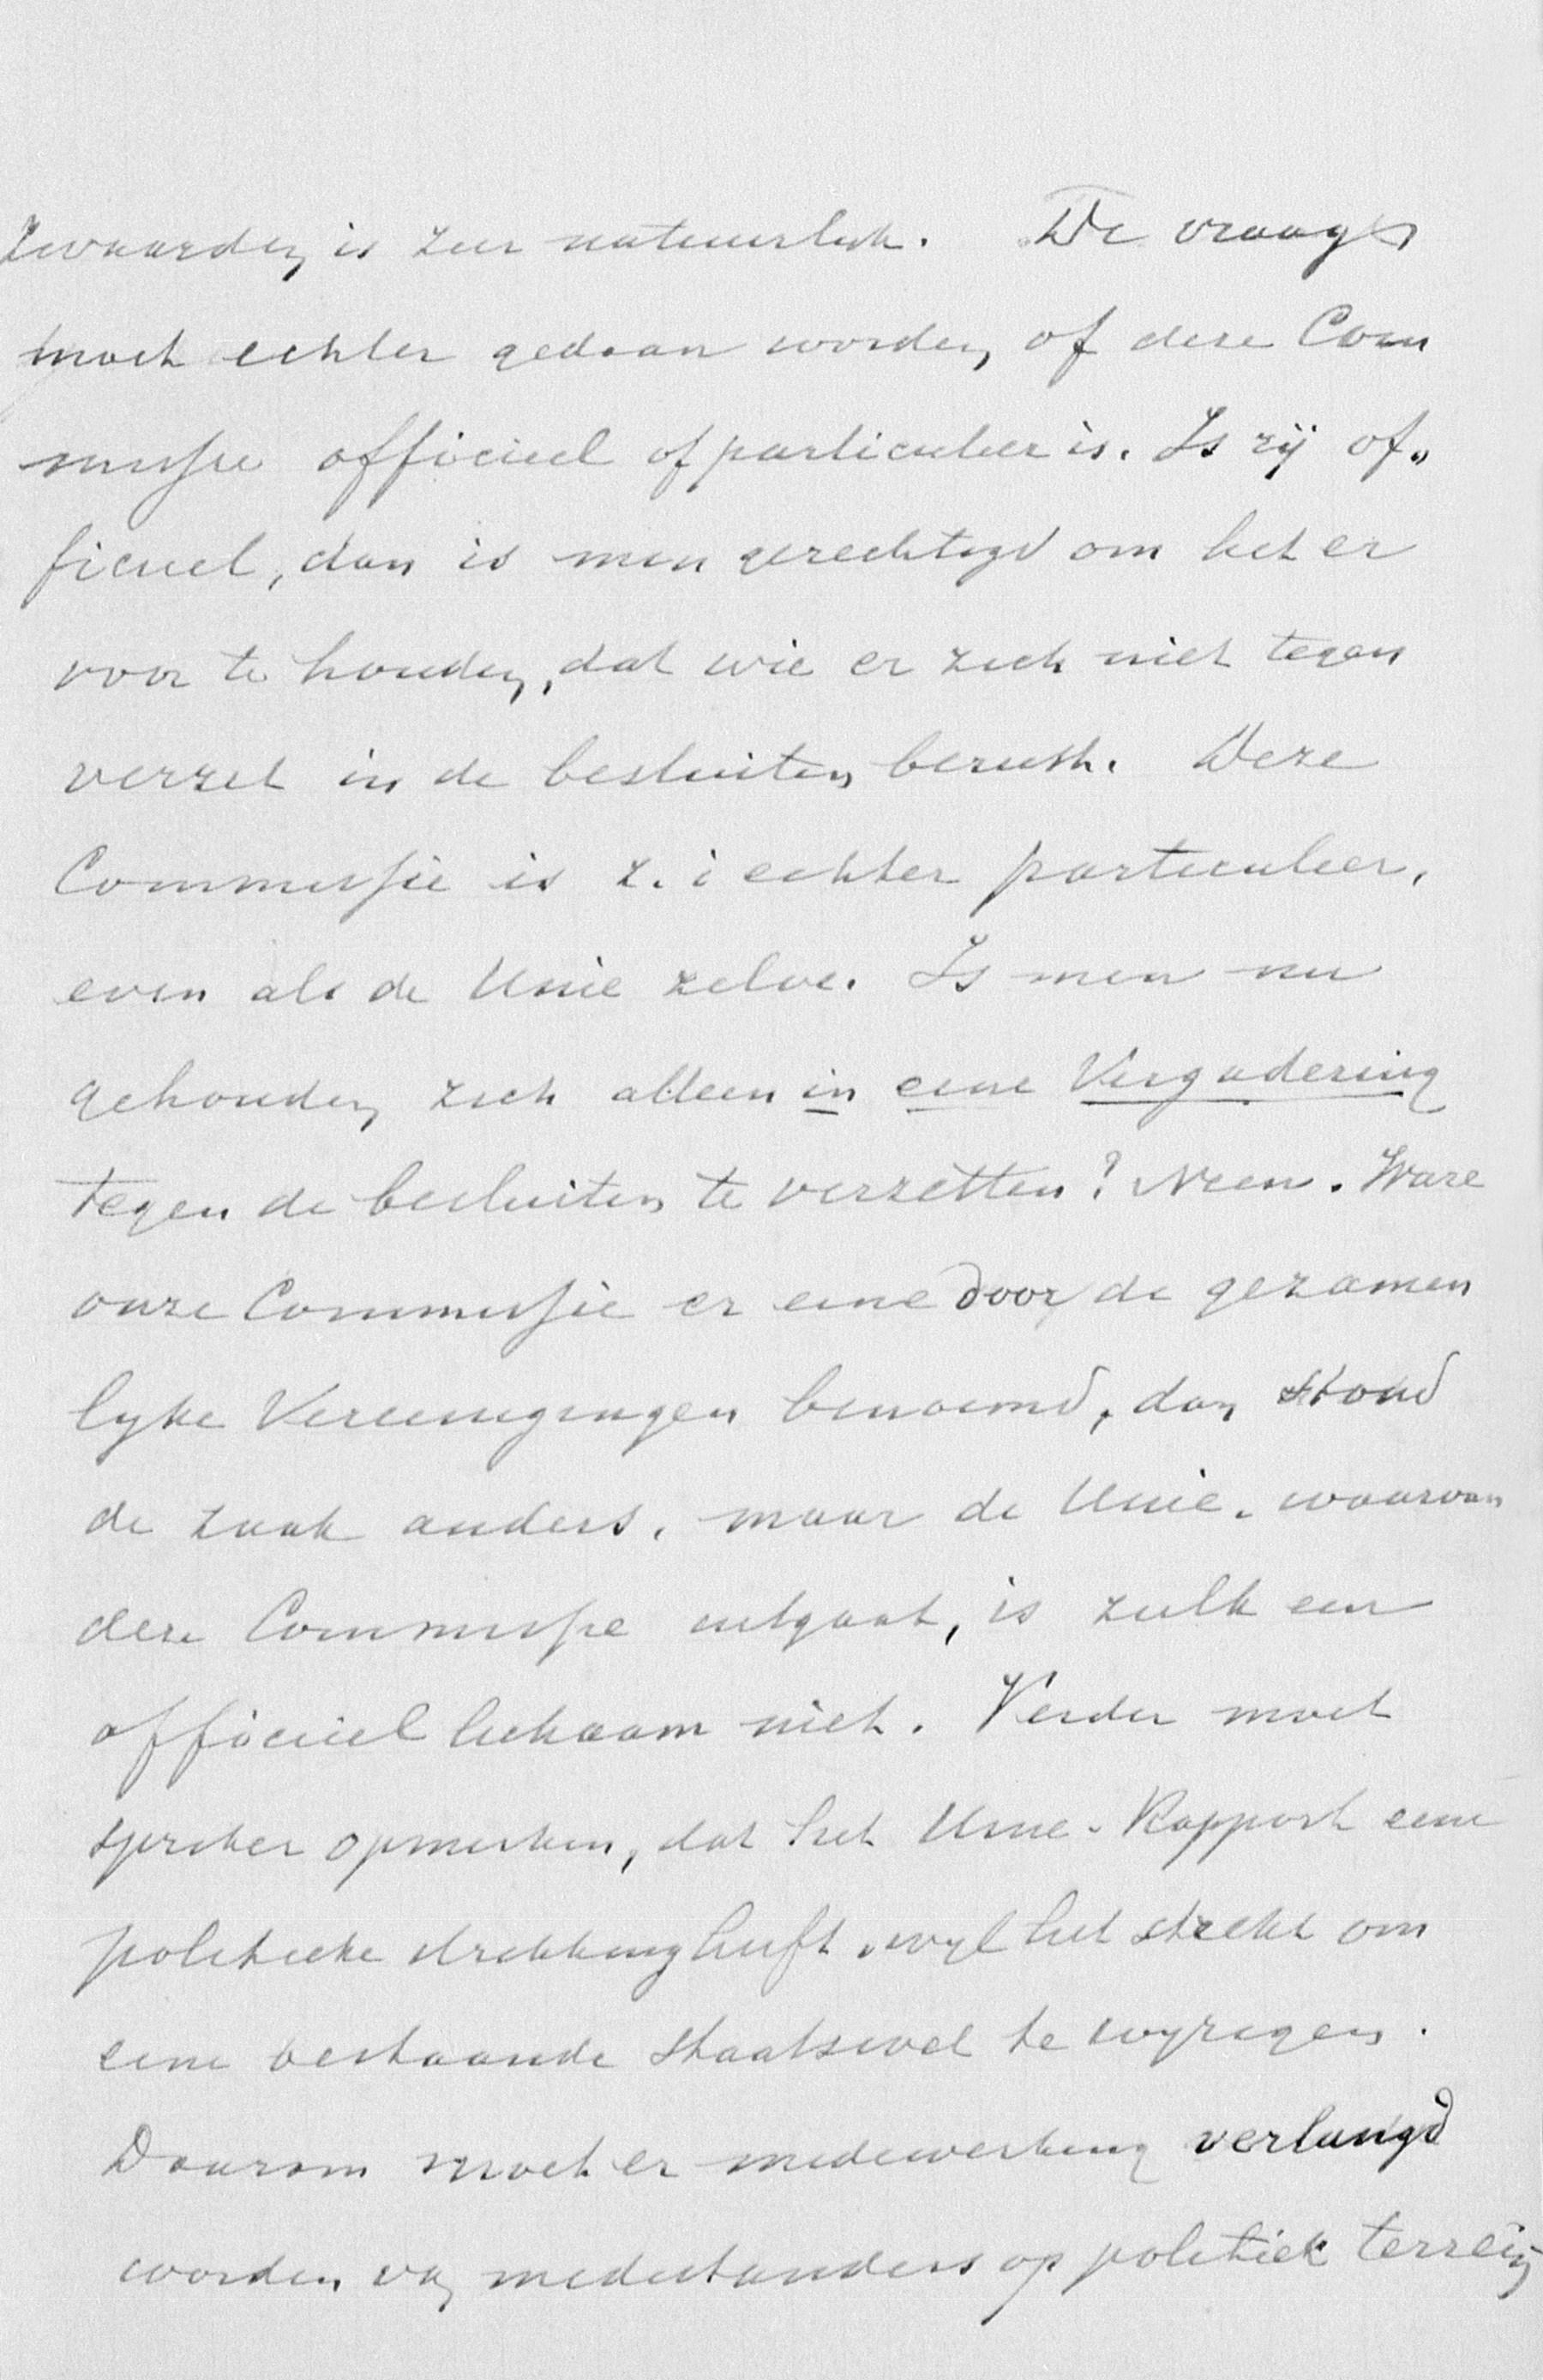 zwaarden is zeer natuurlijk. De vraag
moet echter gedaan worden of deze Com
missie officieel of particulier is. Is zij of„
ficieel, dan is men gerechtigd om het er
voor te houden, dat wie er zich niet tegen
verzet in de besluiten berust. Deze
Commissie is z. i echter particulier,
even als de Unie zelve. Is men nu
gehouden zich alleen in eene Vergadering
tegen de besluiten te verzetten? Neen. Ware
onze Commissie er eene door de gezamen
lyke Vereenigingen benoemd, dan stond
de zaak anders, maar de Unie, waarvan
deze Commissie uitgaat, is zulk een
officieel lichaam niet. Verder moet
spreker opmerken, dat het Unie-Rapport eene
politieke strekking heeft, wyl het strekt om
eene bestaande Staatswet te wyzigen.
Daarom moet er medewerking verlangd
worden van medestanders op politiek terrein